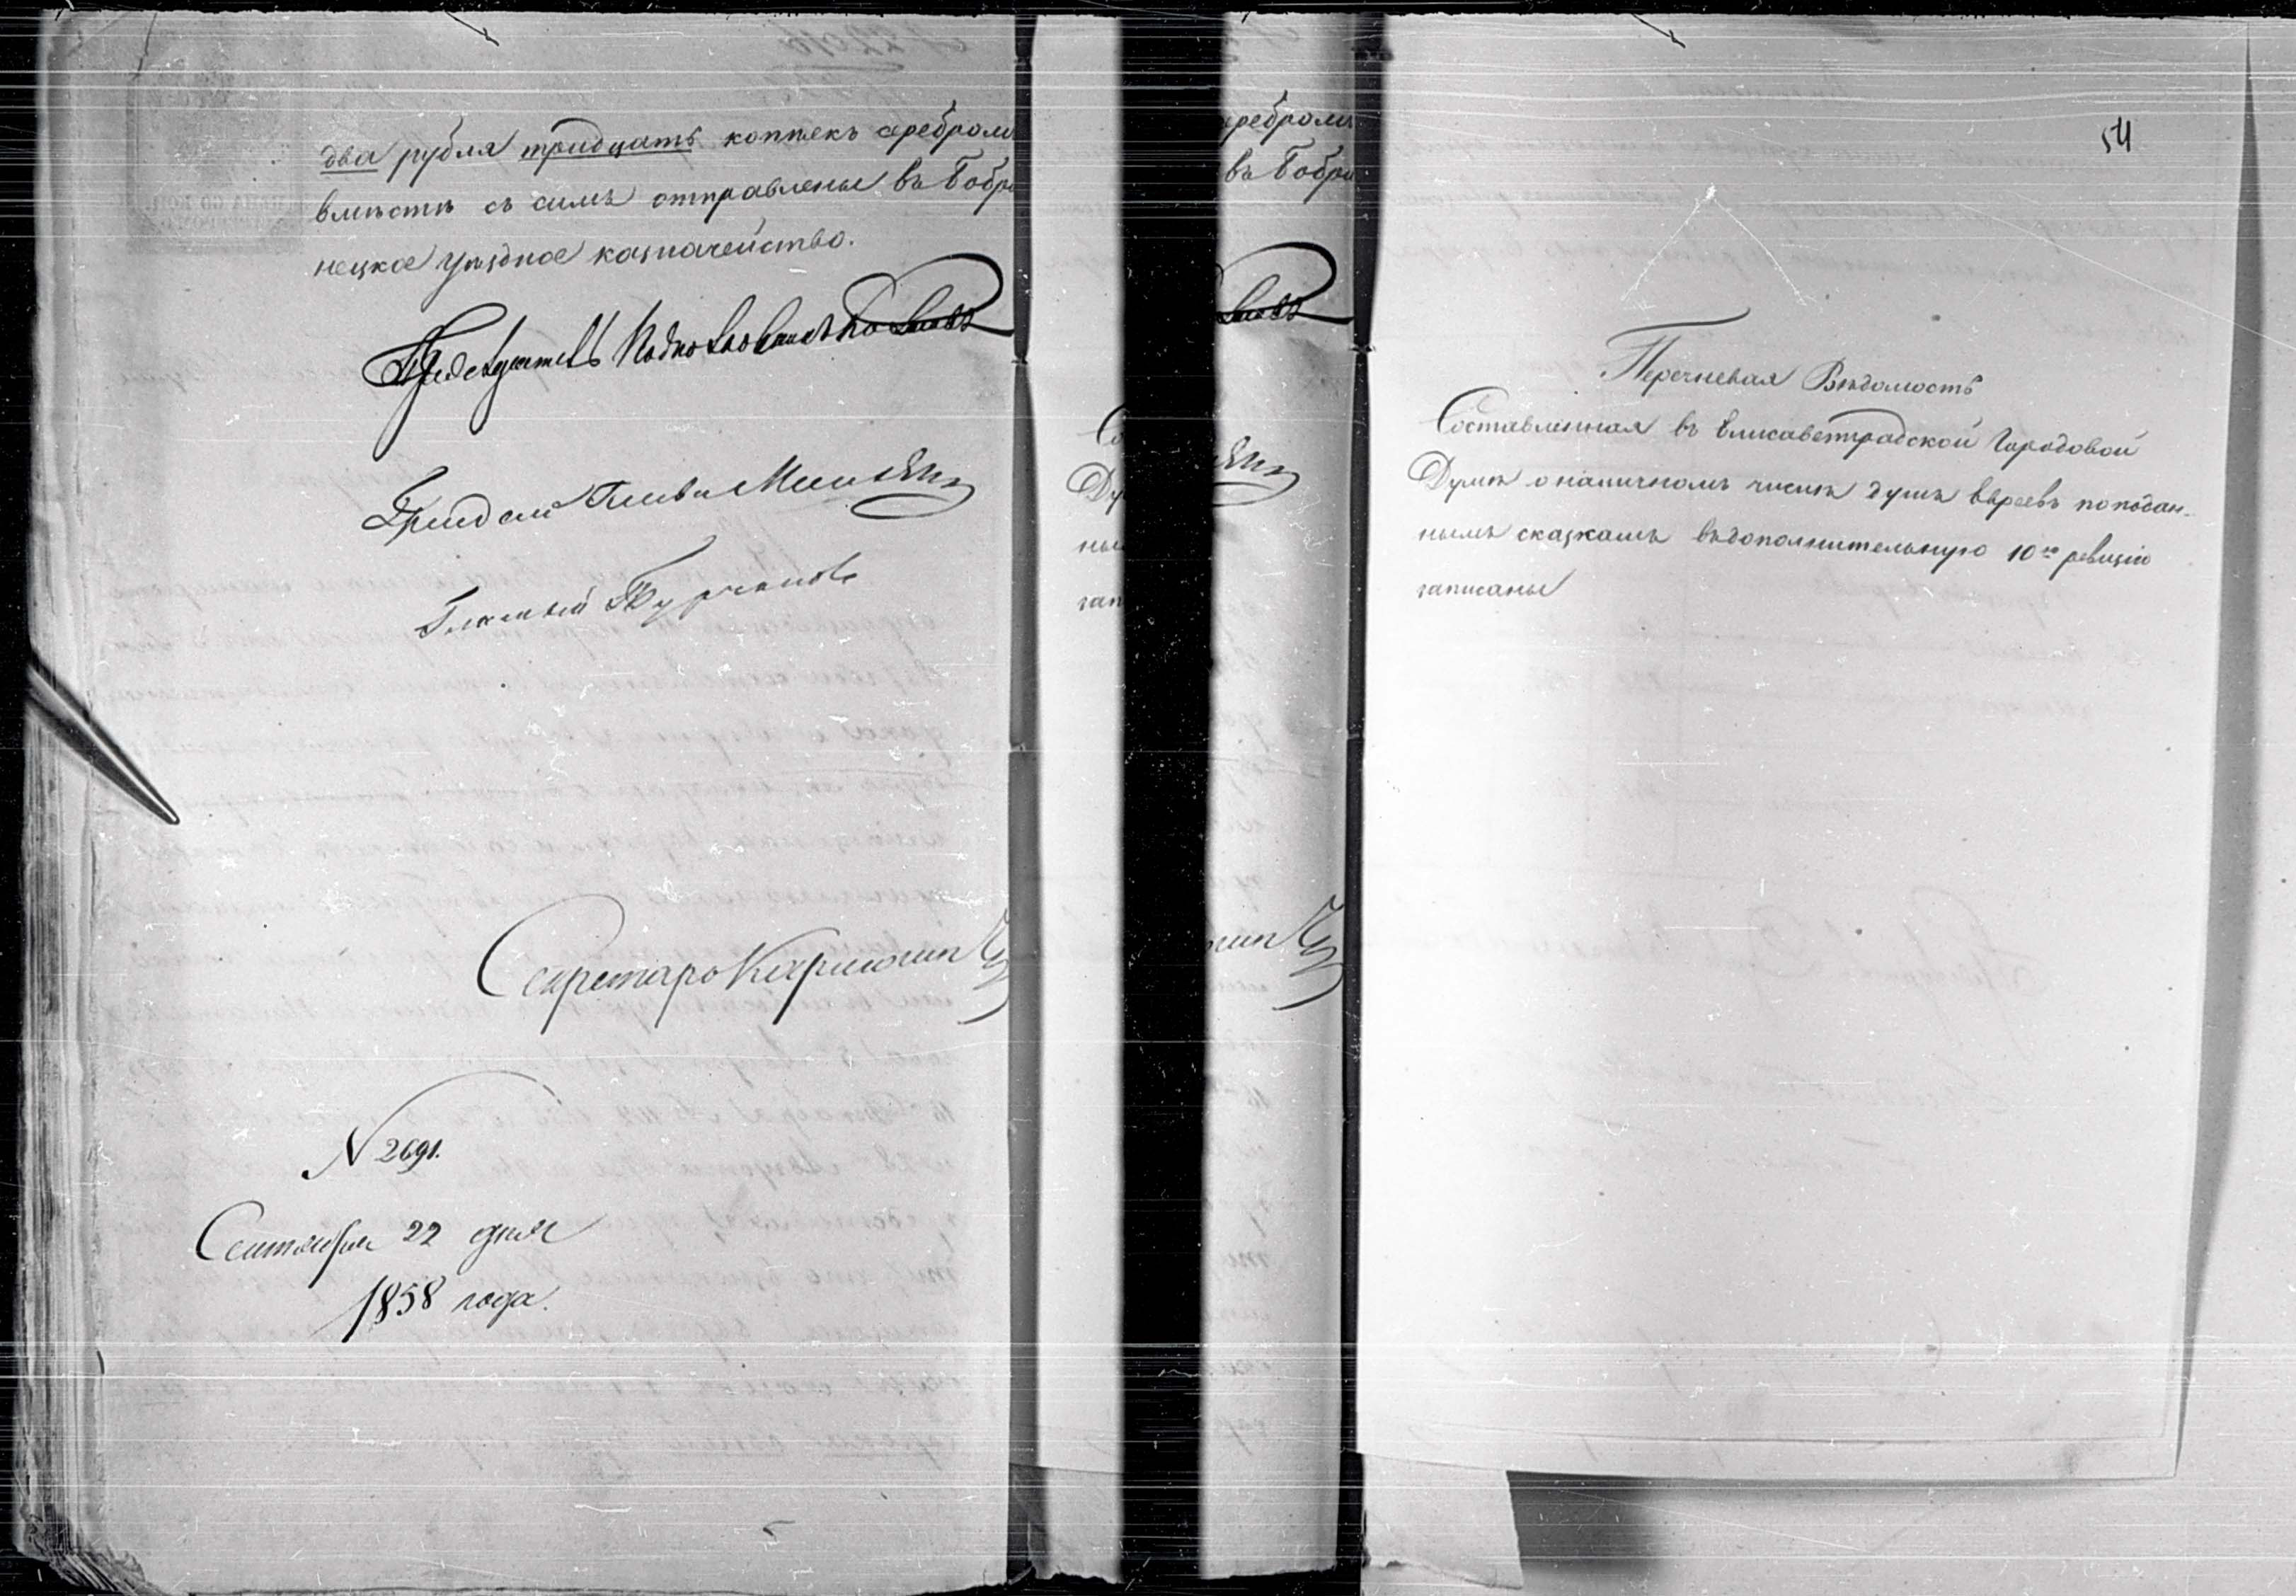 два рубля тридцать копѣекъ серебромъ
вмѣстѣ съ симъ отправлены въ Бобри
нецкое уѣздное казначейство.
Предсѣдатель Подполковникъ
Гласный Турчановъ
Секретарь
N 2691.
Сентября 22 дня
1858 года.
54
Перечневая Вѣдомость
Составленная въ Елисаветградской Городовой
Думѣ о наличномъ числѣ душъ Евреевъ поподан-
нымъ сказкамъ въдополнительную 10ю ревизію
записаны